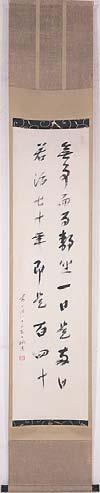 無事而靜坐一日是両日
若活七十年即是百四十